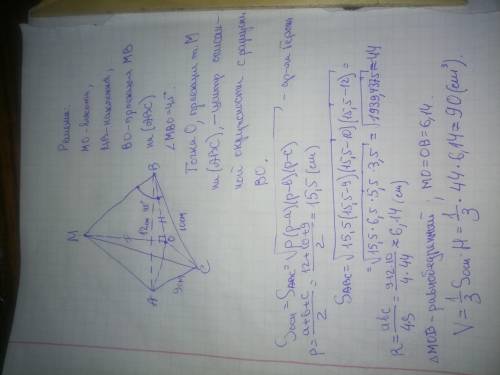 Решение.
МО - высота,
МА - наклонная,
ВО - проекция МВ
на (АВС)
∠МВО = 45°
Точка О, проекция т. М
на (АВС), - центр описан-
ной окружности с радиусом
ВО.
M
A
B
C
O
12см
45°
10см
9см
Sосн = S△ABC = √p(p-a)(p-b)(p-c) - ф-ла Герона
p = a+b+c/2 = 12+10+9/2 = 15,5 (см)
S△ABC = √15,5(15,5-9)(15,5-10)(15,5-12) =
= √15,5·6,5·5,5·3,5 = √1939,4375 ≈ 44
R = abc/4S = 9·12·10/4·44 ≈ 6,14 (см)
△МОВ - равнобедренный; МО=ОВ=6,14.
V = 1/3 Sосн·H = 1/3 · 44 · 6,14 ≈ 90 (см³).